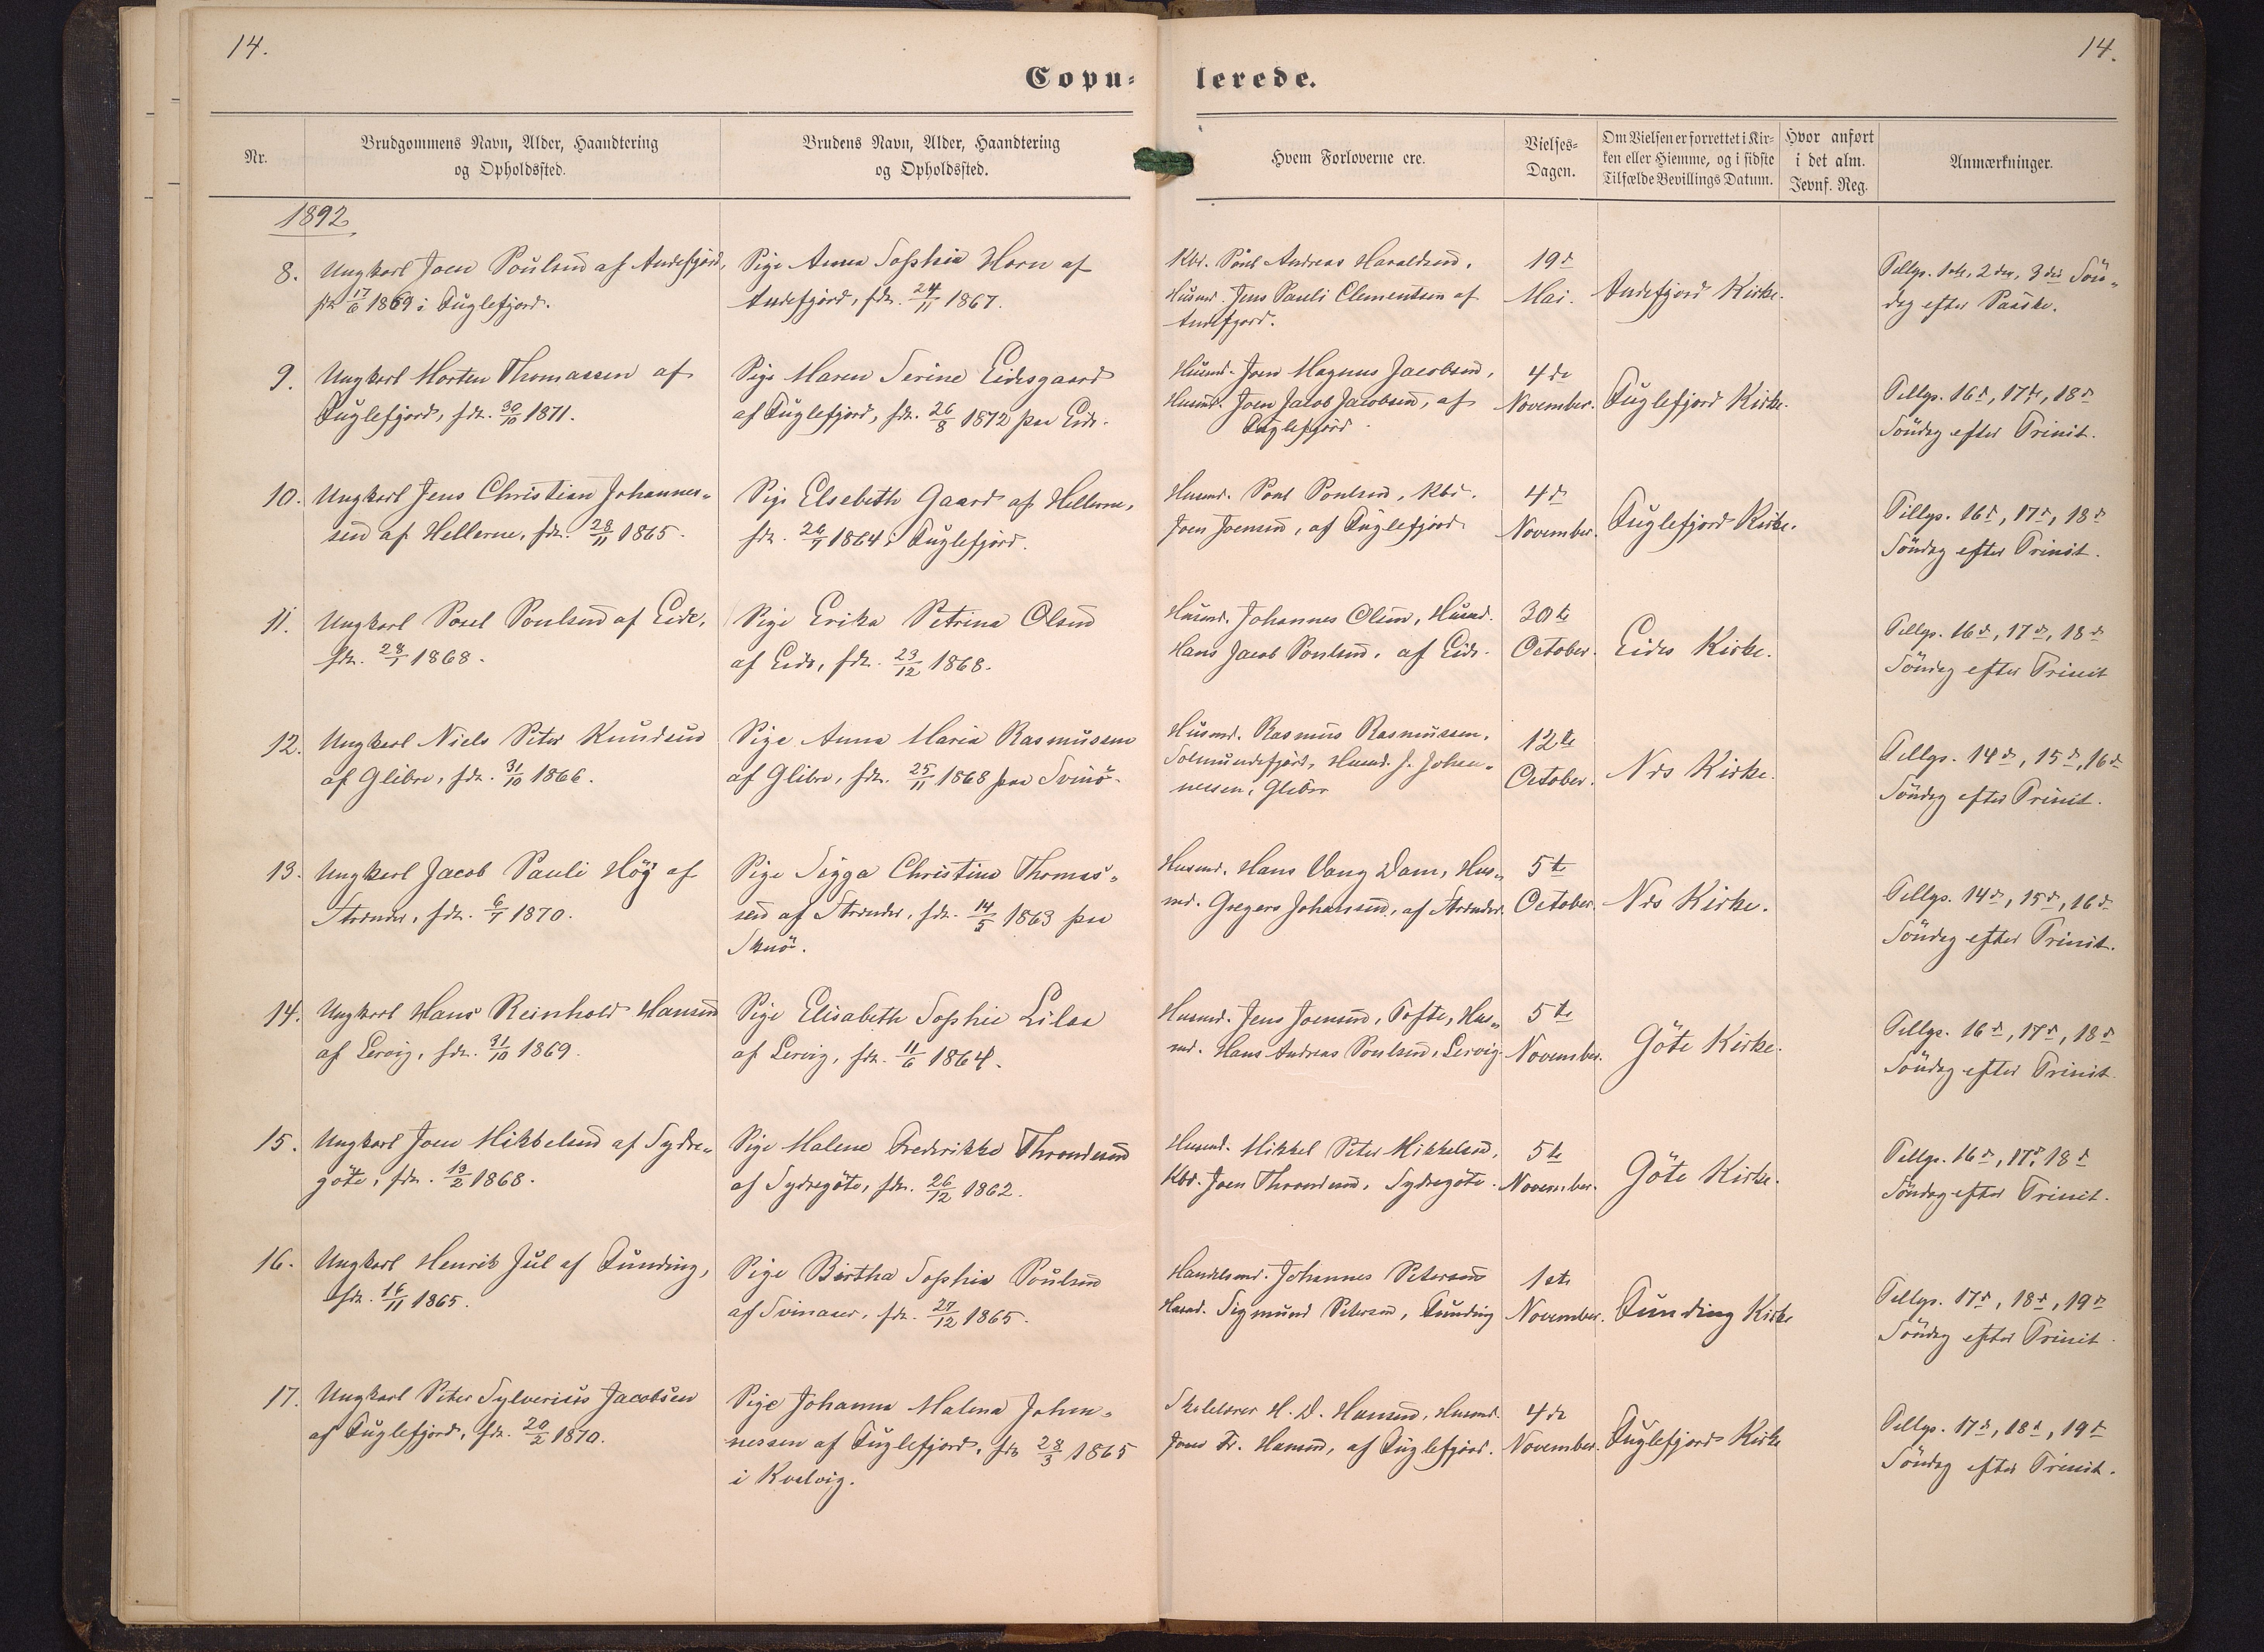 14.
14.
Copu-
lerede.
Nr.
Brudgommens Navn, Alder, Haandtering
og Opholdssted.
Brudens Navn, Alder, Haandtering
og Opholdssted.
Hvem Forloverne ere.
Vielses-
Dagen.
Om Vielsen er forrettet i Kir-
ken eller Hiemme, og i sidste
Tilfælde Bevillings Datum.
Hvor anført
i det alm.
Jevnf. Reg.
Anmærkninger.
1892
8.
Ungkarl Joen Poulsen af Andefjord,
fdt 17/6 1869 i Fuglefjord.
Pige Anna Sophia Horn af
Andefjord, fdt. 24/11 1867.
Kbd. Poul Andreas Haraldsen,
Husmd. Jens Pauli Clementsen af
Andefjord.
19d
Mai.
Andefjord Kirke.
Tillys. 1ste, 2den, 3die Søn-
dag efter Paaske.
9.
Ungkarl Morten Thomassen af
Fuglefjord, fdt. 30/10 1871.
Pige Maren Serine Eidesgaard
af Fuglefjord, fdt. 26/8 1872 paa Eide.
Husmd. Joen Magnus Jacobsen,
Husmd. Joen Jacob Jacobsen, af
Fuglefjord.
4de
November.
Fuglefjord Kirke.
Tillys. 16d, 17de, 18d
Söndag efter Trinit.
10.
Ungkarl Jens Christian Johannes-
sen af Hellerne, fdt. 28/11 1865.
Pige Elsebeth Gaard af Hellerne,
fdt. 26/7 1864 i Fuglefjord.
Husmd. Poul Poulsen, Kbd.
Joen Joensen, af Fuglefjord.
4d
November.
Fuglefjord Kirke.
Tillys. 16d, 17d, 18d
Söndag efter Trinit.
11.
Ungkarl Poul Poulsen af Eide,
fdt. 28/1 1868.
Pige Erika Petrina Olsen
af Eide, fdt. 23/12 1868.
Husmd. Johannes Olsen, Husmd.
Hans Jacob Poulsen, af Eide.
30te
October.
Eides Kirke.
Tillys. 16d, 17d, 18d
Söndag efter Trinit
12.
Ungkarl Niels Peter Knudsen
af Glibre, fdt. 31/10 1866.
Pige Anna Maria Rasmussen
af Glibre, fdt. 25/11 1868 paa Svinö.
Husmd. Rasmus Rasmussen,
Solmundefjord, Husmd. J. Johan-
nessen, Glibre
12te
October.
Nes Kirke.
Tillys. 14d, 15d, 16d
Söndag efter Trinit.
13.
Ungkarl Jacob Pauli Höj af
Strender, fdt. 6/7 1870.
Pige Sigga Christine Thomas-
sen af Strender, fdt. 14/5 1863 paa
Skuö.
Husmd. Hans Vang Dam, Hus-
md. Gregers Johansen, af Strender.
5te
October.
Nes Kirke.
Tillys. 14d, 15d, 16d
Söndag efter Trinit.
14.
Ungkarl Hans Reinhold Hansen
af Lervig, fdt. 31/10 1869.
Pige Elisabeth Sophie Lilaa
af Lervig, fdt. 11/6 1864.
Husmd. Jens Joensen, Tofte, Hus-
md. Hans Andreas Poulsen, Lervig.
5te
November.
Göte Kirke.
Tillys. 16d, 17d, 18d
Söndag efter Trinit.
15.
Ungkarl Joen Mikkelsen af Sydre-
göte, fdt. 13/2 1868.
Pige Malene Frederikke Throndesen
af Sydregöte, fdt. 26/12 1862.
Husmd. Mikkel Peter Mikkelsen,
Kbd. Joen Throndesen, Sydregöte.
5te
November.
Göte Kirke.
Tillys. 16d, 17d, 18d
Söndag efter Trinit.
16.
Ungkarl Henrik Jul af Funding,
fdt. 16/11 1865.
Pige Birtha Sophia Poulsen
af Svinaaer, fdt. 27/12 1865.
Handelsmd. Johannes Petersen
Husmd. Sigmund Petersen, Funding
1ste
November.
Funding Kirke
Tillys. 17d, 18d, 19d
Söndag efter Trinit.
17.
Ungkarl Peter Sylverius Jacobsen
af Fuglefjord, fdt. 20/2 1870.
Pige Johanna Malena Johan-
nessen af Fuglefjord, fdt 28/3 1865
i Kvalvig.
Skolelærer H. D. Hansen, Husmd.
Joen Fr. Hansen, af Fuglefjord.
4de
November.
Fuglefjord Kirke
Tillys. 17d, 18d, 19d
Söndag efter Trinit.